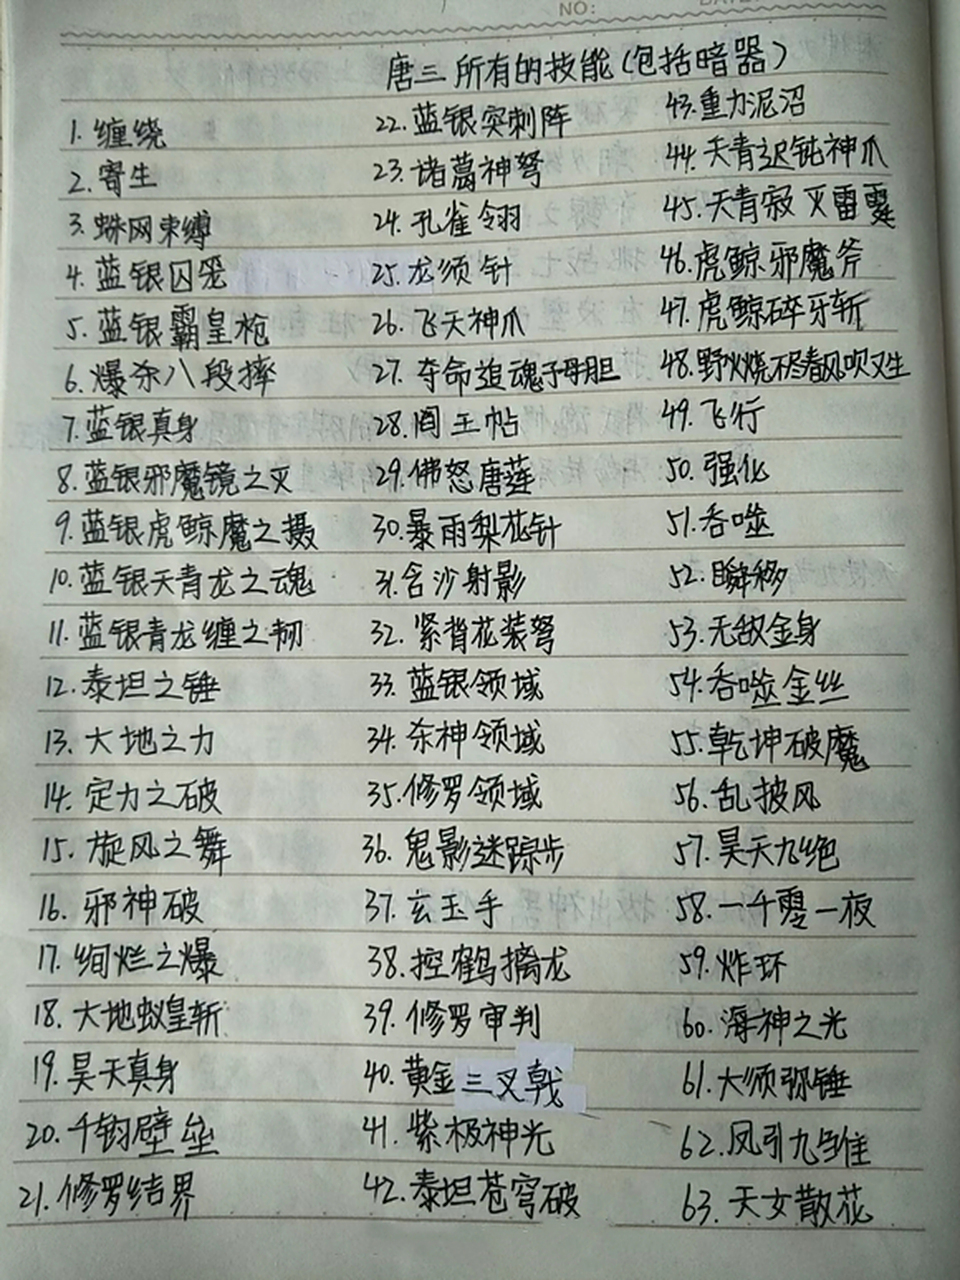 NO:
唐三所有的技能(包括暗器)
1. 缠绕
2. 寄生
3. 蛛网束缚
4. 蓝银囚笼
5. 蓝银霸皇枪
6. 爆杀八段摔
7. 蓝银真身
8. 蓝银邪魔镜之灭
9. 蓝银虎鲸魔之摄
10. 蓝银天青龙之魂
11. 蓝银青龙缠之韧
12. 泰坦之锤
13. 大地之力
14. 定力之破
15. 旋风之舞
16. 邪神破
17. 绚烂之爆
18. 大地蚁皇斩
19. 昊天真身
20. 千钧壁垒
21. 修罗结界
22. 蓝银突刺阵
23. 诸葛神弩
24. 孔雀翎羽
25. 龙须针
26. 飞天神爪
27. 夺命追魂子母胆
28. 阎王帖
29. 佛怒唐莲
30. 暴雨梨花针
31. 含沙射影
32. 紧背花装弩
33. 蓝银领域
34. 杀神领域
35. 修罗领域
36. 鬼影迷踪步
37. 玄玉手
38. 控鹤擒龙
39. 修罗审判
40. 黄金三叉戟
41. 紫极神光
42. 泰坦苍穹破
43. 重力泥沼
44. 天青迟钝神爪
45. 天青寂灭雷霆
46. 虎鲸邪魔斧
47. 虎鲸碎牙斩
48. 野火烧不尽春风吹又生
49. 飞行
50. 强化
51. 吞噬
52. 瞬移
53. 无敌金身
54. 吞噬金丝
55. 乾坤破魔
56. 乱披风
57. 昊天九绝
58. 一千零一夜
59. 炸环
60. 海神之光
61. 大须弥锤
62. 凤引九雏
63. 天女散花